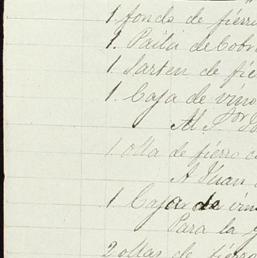 1 fondo de fierro
1. Paila de Cobr
1 Sarten de fie
1. Caja de vino
Al Sor
1 olla de fierro c
A Juan
1 Caja de vin
Para la
2 ollas de fierro